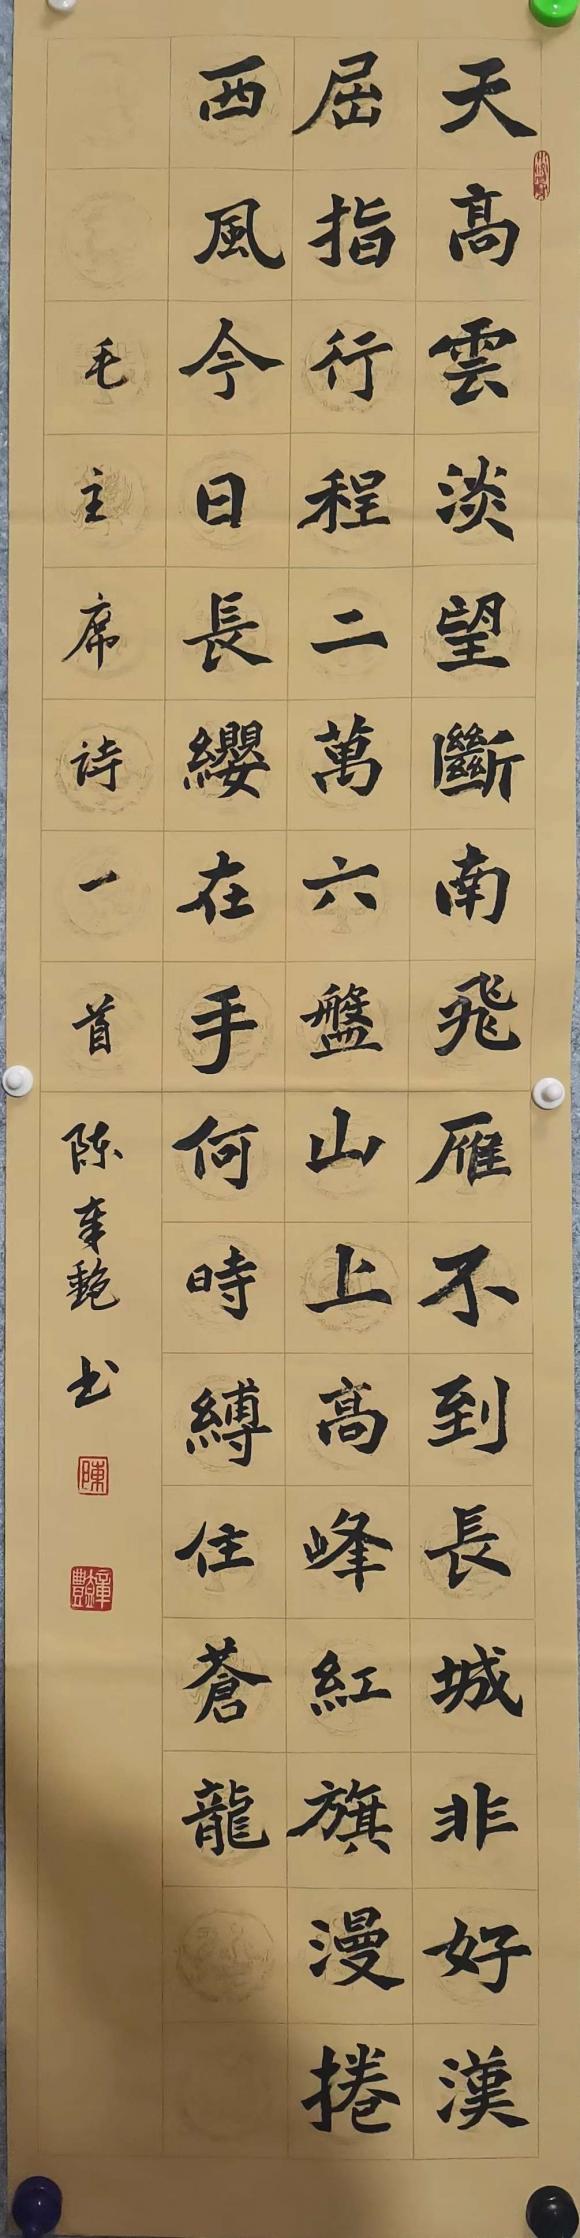 天髙雲淡望斷南飛雁不到長城非好漢
屈指行程二萬六盤山上高峰紅旗漫捲
西風今日長纓在手何時縛住蒼龍
毛主席诗一首 陈章艳 书
陳